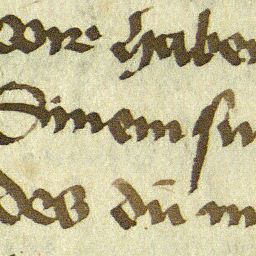 wir haben
Sinem su
des dū m